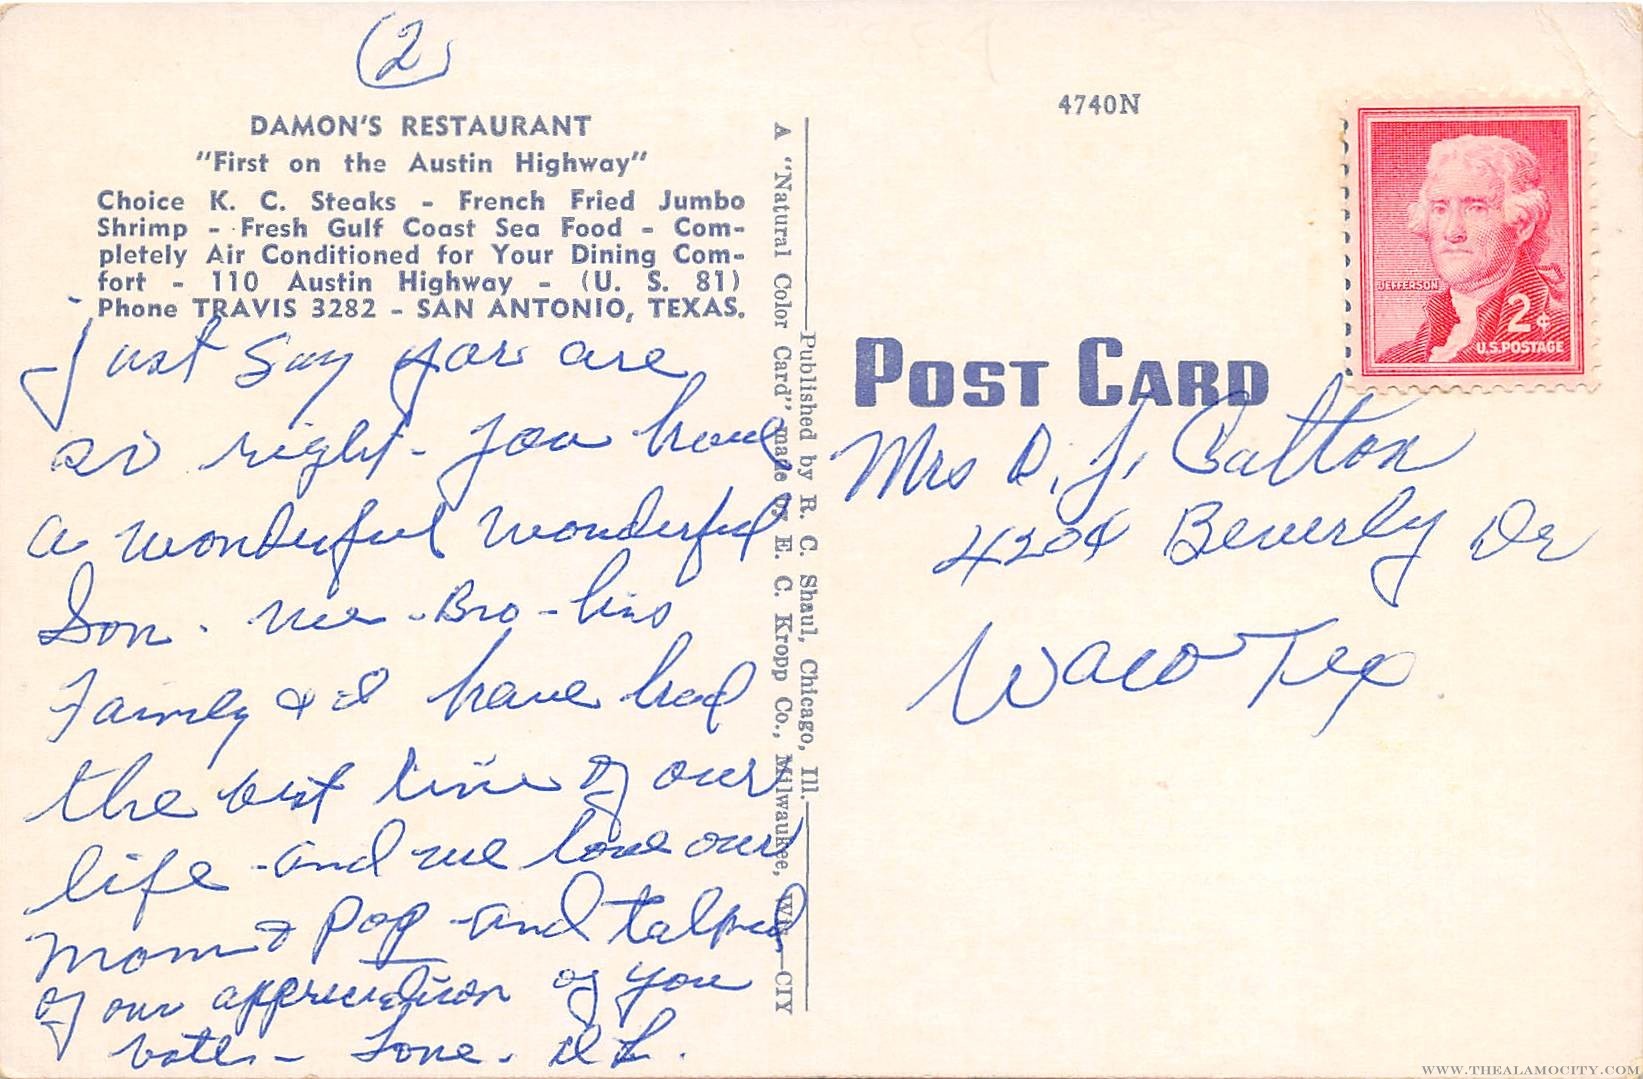 (2)
DAMON'S RESTAURANT
"First on the Austin Highway"
Choice K. C. Steaks - French Fried Jumbo
Shrimp - Fresh Gulf Coast Sea Food - Com-
pletely Air Conditioned for Your Dining Com-
fort - 110 Austin Highway - (U. S. 81)
Phone TRAVIS 3282 - SAN ANTONIO, TEXAS.
Just say you are
so right - you have
a wonderful wonderful
Son. We - Bro -
Family & I have had
the best time of our
life - and we love our
Mom & Pop - and talked
of our appreciation of you
both - Love - D L.
A "Natural Color Card" made by E. C. Kropp Co., Milwaukee, Wis.—CIY
Published by R. C. Shaul, Chicago, Ill.
4740N
JEFFERSON
2¢
U.S. POSTAGE
POST CARD
Mrs D. J. Calton
4204 Beverly Dr
Waco Tex
WWW.THEALAMOCITY.COM